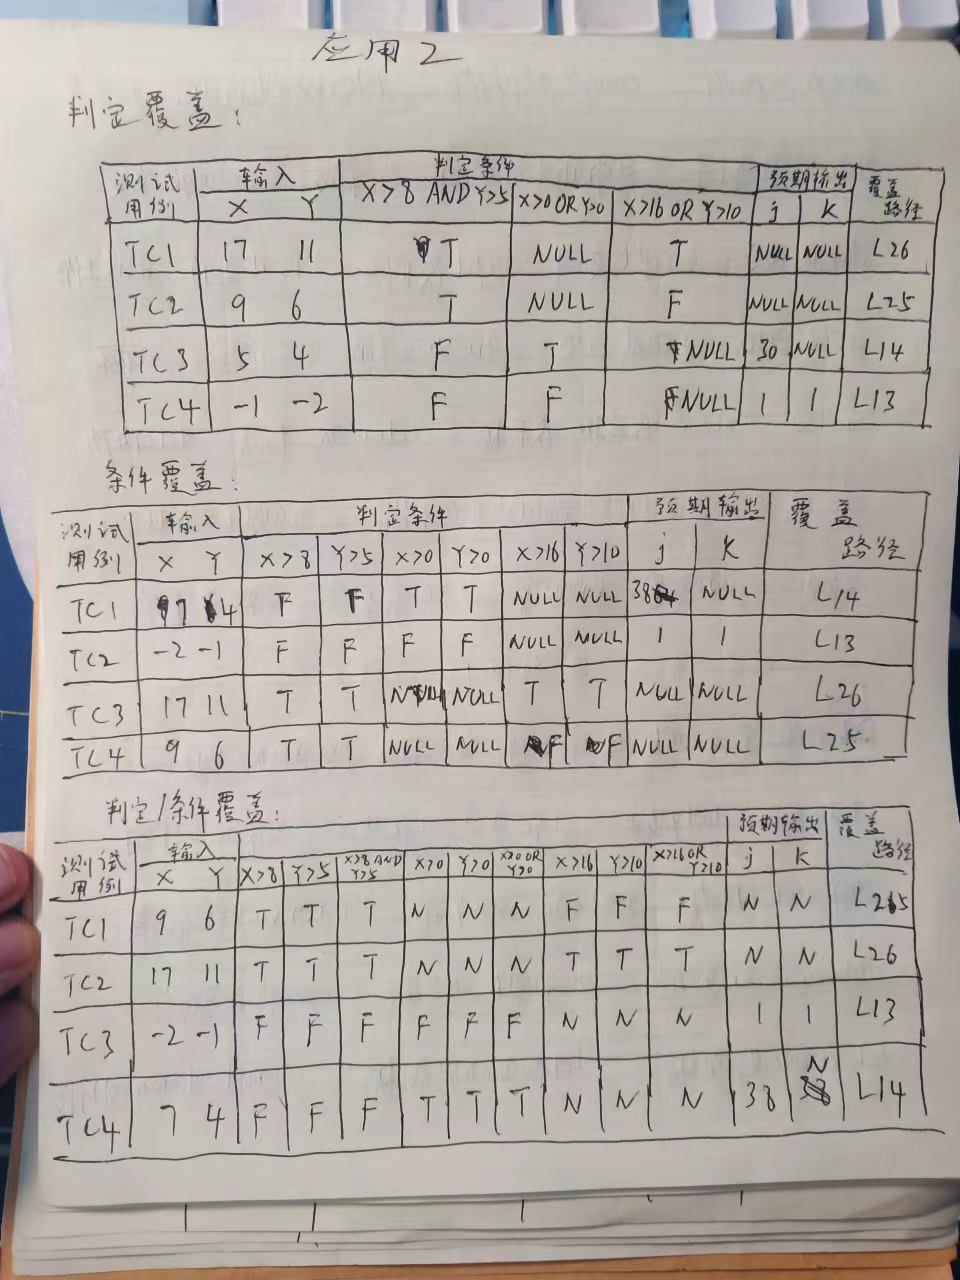 应用2
判定覆盖:
测试 输入 判定条件 预期输出 覆盖
用例 X Y X>8 AND Y>5 X>0 OR Y>0 X>16 OR Y>10 j K 路径
TC1 17 11 T NULL T NULL NULL L26
TC2 9 6 T NULL F NULL NULL L25
TC3 5 4 F T NULL 30 NULL L14
TC4 -1 -2 F F NULL 1 1 L13
条件覆盖:
测试 输入 判定条件 预期输出 覆盖
用例 X Y X>8 Y>5 X>0 Y>0 X>16 Y>10 j K 路径
TC1 7 4 F F T T NULL NULL 38 NULL L14
TC2 -2 -1 F F F F NULL NULL 1 1 L13
TC3 17 11 T T NULL NULL T T NULL NULL L26
TC4 9 6 T T NULL NULL F F NULL NULL L25
判定/条件覆盖:
测试 输入 预期输出 覆盖
用例 X Y X>8 Y>5 X>8 AND Y>5 X>0 Y>0 X>0 OR Y>0 X>16 Y>10 X>16 OR Y>10 j k 路径
TC1 9 6 T T T N N N F F F N N L25
TC2 17 11 T T T N N N T T T N N L26
TC3 -2 -1 F F F F F F N N N 1 1 L13
TC4 7 4 F F F T T T N N N 38 N L14